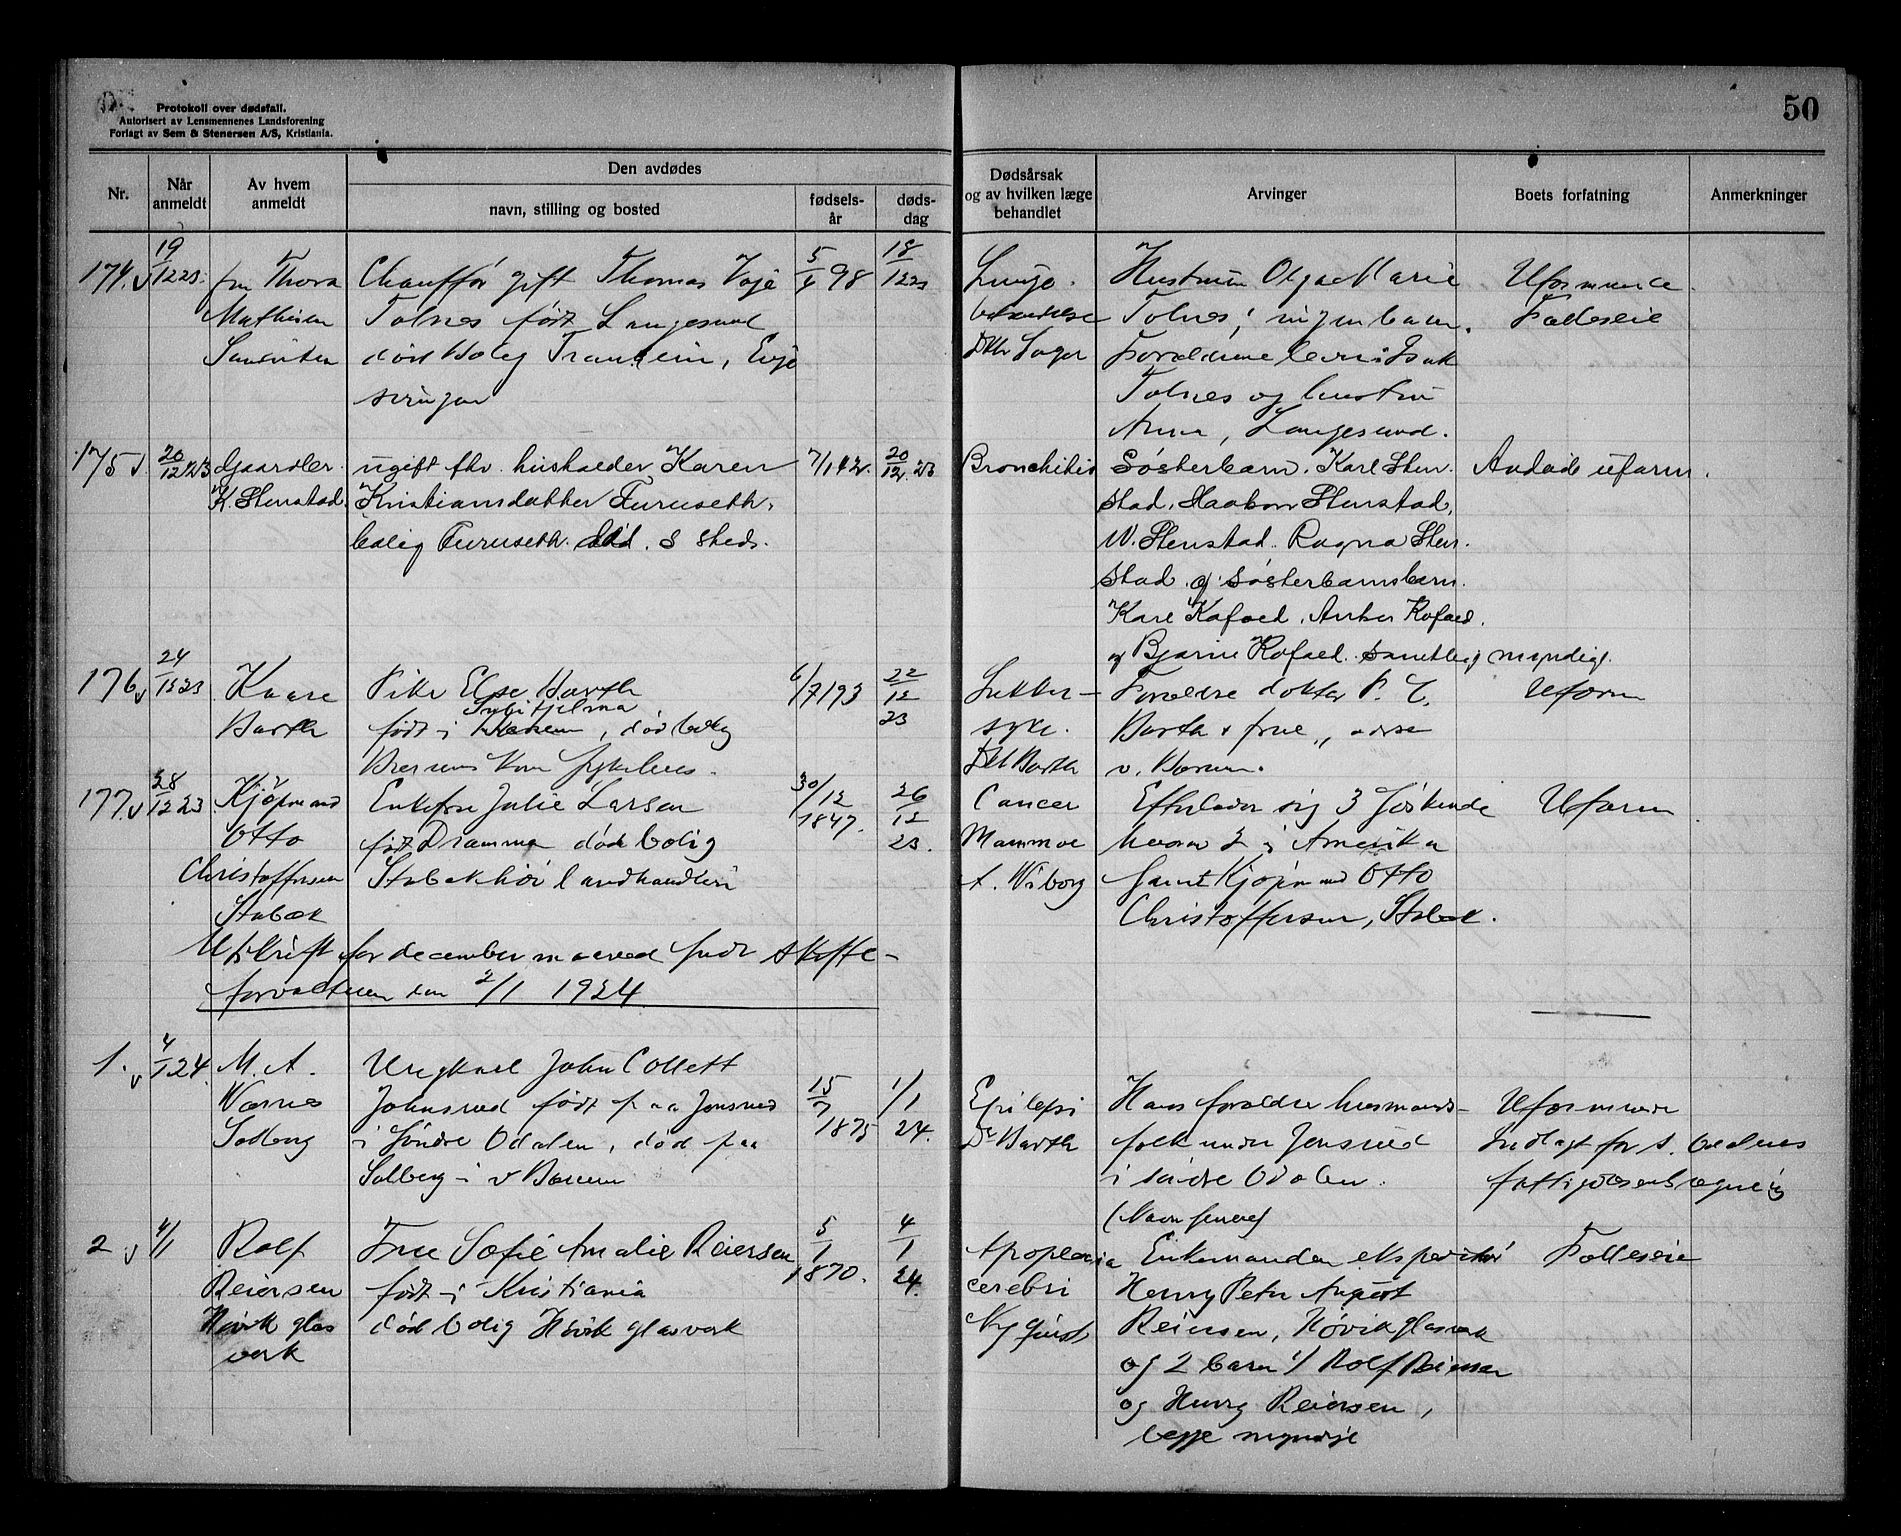 50
Protokoll over dødsfall.
Autorisert av Lensmennenes Landsforening
Forlagt av Sem & Stenersen A/S, Kristiania.
Nr.
Når anmeldt
Av hvem anmeldt
Den avdødes
navn, stilling og bosted
fødsels-år
døds-dag
Dødsårsak og av hvilken læge behandlet
Arvinger
Boets forfatning
Anmerkninger
174. 19/12 23.
fru Thora
Mathisen
Chauffør gift Thomas
Tolnes født Langesund
død bolig
5/4 98
18/12 23
Lunge-
Hustruen Olga Marie
Tolnes, ingen barn.
Forældrene
Tolnes og hustru
Anna, Langesund.
Uformuende
Fælleseie
175 20/12 23
Gaardbr.
K. Stenstad.
ugift fhv. husholder Karen
Kristiansdatter Furuseth.
bolig Furuseth. død. s steds.
20/12 23
Bronchitis
Søsterbarn. Karl Sten-
stad. Haakon Stenstad.
W. Stenstad. Ragna Sten-
stad og søsterbarnsbarn.
Karl Kofoed. Anker Kofoed.
og Bjarne Kofoed. samtlig myndige.
Avdøde uform.
176 24/12 23
Kaare
Barth
Pike Else Barth
født i , død bolig
6/7 193
22/12 23
Sukker-
syke.
Barth
Forældre doktor P. C.
Barth & frue
v. Bærum.
Uform
177. 28/12 23.
Kjøpmand
Otto
Christoffersen
Stabæk
Enkefru Julie Larsen
født Drammen død bolig
Stabækhøi landhandleri
30/12 1847.
26/12 23.
Cancer
Mammae
A. Wiborg
Efterlader sig 3 søskende
hvorav 2 i Amerika
samt Kjøpmand Otto
Christoffersen, Stabæk.
Uform
Utskrift for december maaned sendt skifte-
forvalteren den 2/1 1924
1. 4/1 24.
M. A.
Værnes
Solberg
Ungkarl John Collett
Johnsrud født paa Jonsrud
i søndre Odalen, død paa
Solberg i v Bærum
15/7 1875
1/1 24.
Epilepsi
Dr Barth
Hans forældre husmands-
folk under Jonsrud
i søndre Odalen.
Uformuende
Indlagt for s. Odalens
fattigvæsens regning
2 4/1
Rolf
Reiersen
Høvik glas
verk
Frue Sofie Amalie Reiersen
født i Kristiania
død bolig Høvik glasverk
5/1 1870.
4/1 24.
Apoplexia
cerebri
Nyquist
Enkemanden ekspeditør
Henry Peter August
Reiersen, Høvik glasverk
og 2 barn 1/ Rolf Reiersen
og Henry Reiersen,
begge myndige
Fælleseie